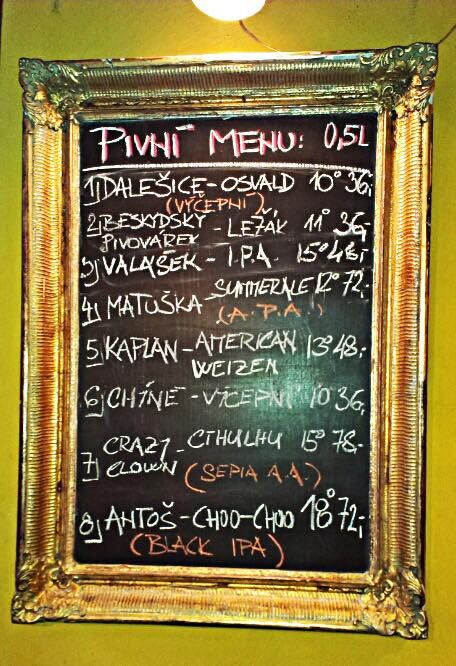 PIVNÍ MENU: 0,5L
1) DALEŠICE - OSVALD 10° 36,-
(VÝČEPNÍ)
2) BESKYDSKÝ PIVOVÁREK - LEŽÁK 11° 36,-
3) VALAŠEK - I.P.A. 15° 48,-
4) MATUŠKA - SUMMER ALE 12° 72,-
(A.P.A.)
5) KAPLAN - AMERICAN WEIZEN 13° 48,-
6) CHÝNĚ - VÝČEPNÍ 10° 36,-
7) CRAZY CLOWN - CTHULHU 15° 78,-
(SEPIA A.A.)
8) ANTOŠ - CHOO-CHOO 18° 72,-
(BLACK IPA)